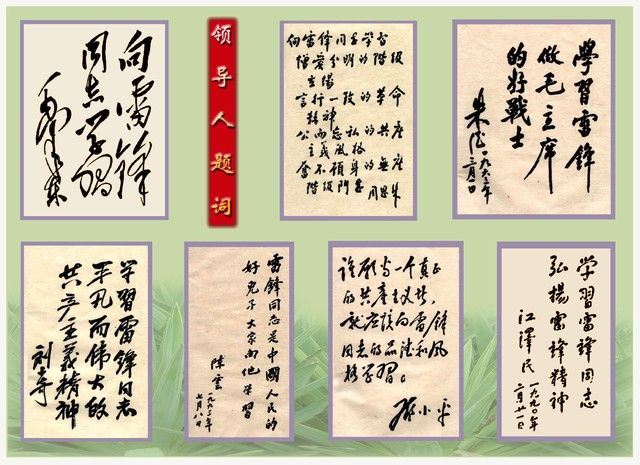 向雷鋒
同志学習
毛泽东
领导人题词
向雷锋同志学習
憎爱分明的階级
立場
言行一致的革命
精神
公而忘私的共產
主義風格
奮不顧身的無產
階級鬥志
周恩来
學習雷鋒
做毛主席
的好戰士
朱德 一九六三年
学習雷鋒同志
平凡而偉大的
共产主義精神
刘少奇
雷鋒同志是中國人民的
好兒子 大家向他學習
陳雲
一九六三年
七月八日
谁愿当一个真正
的共产主义者,
就应该向雷锋
同志的品德和风
格学習。
邓小平
学習雷鋒同志
弘揚雷鋒精神
江澤民
一九九〇年